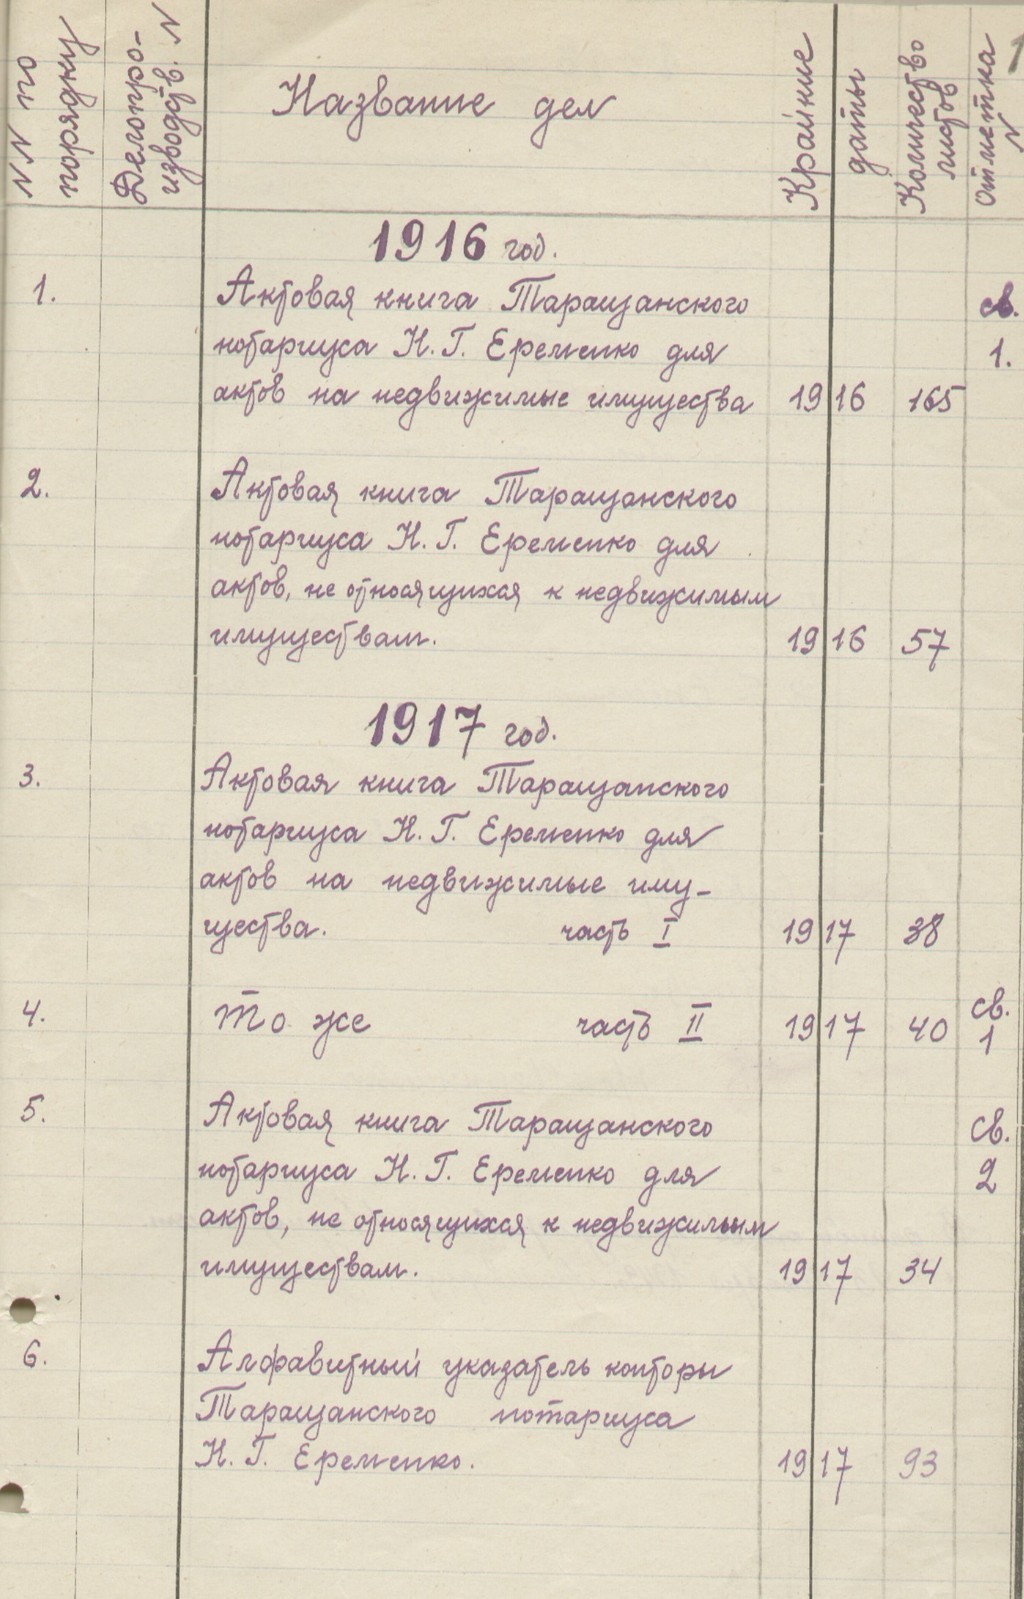 NN по порядку
Делопро-
изводств. N
Название дел
Крайние даты
Количество листов
Отметка
N
1
1916 год.
1. Актовая книга Таращанского св.
нотариуса Н. Г. Еременко для 1.
актов на недвижимые имущества 1916 165
2. Актовая книга Таращанского
нотариуса Н. Г. Еременко для
актов, не относящихся к недвижимым
имуществам. 1916 57
1917 год.
3. Актовая книга Таращанского
нотариуса Н. Г. Еременко для
актов на недвижимые иму-
щества. часть I 1917 38
4. То же часть II 1917 40 св. 1
5. Актовая книга Таращанского св.
нотариуса Н. Г. Еременко для 2
актов, не относящихся к недвижимым
имуществам. 1917 34
6. Алфавитный указатель конторы
Таращанского нотариуса
Н. Г. Еременко. 1917 93